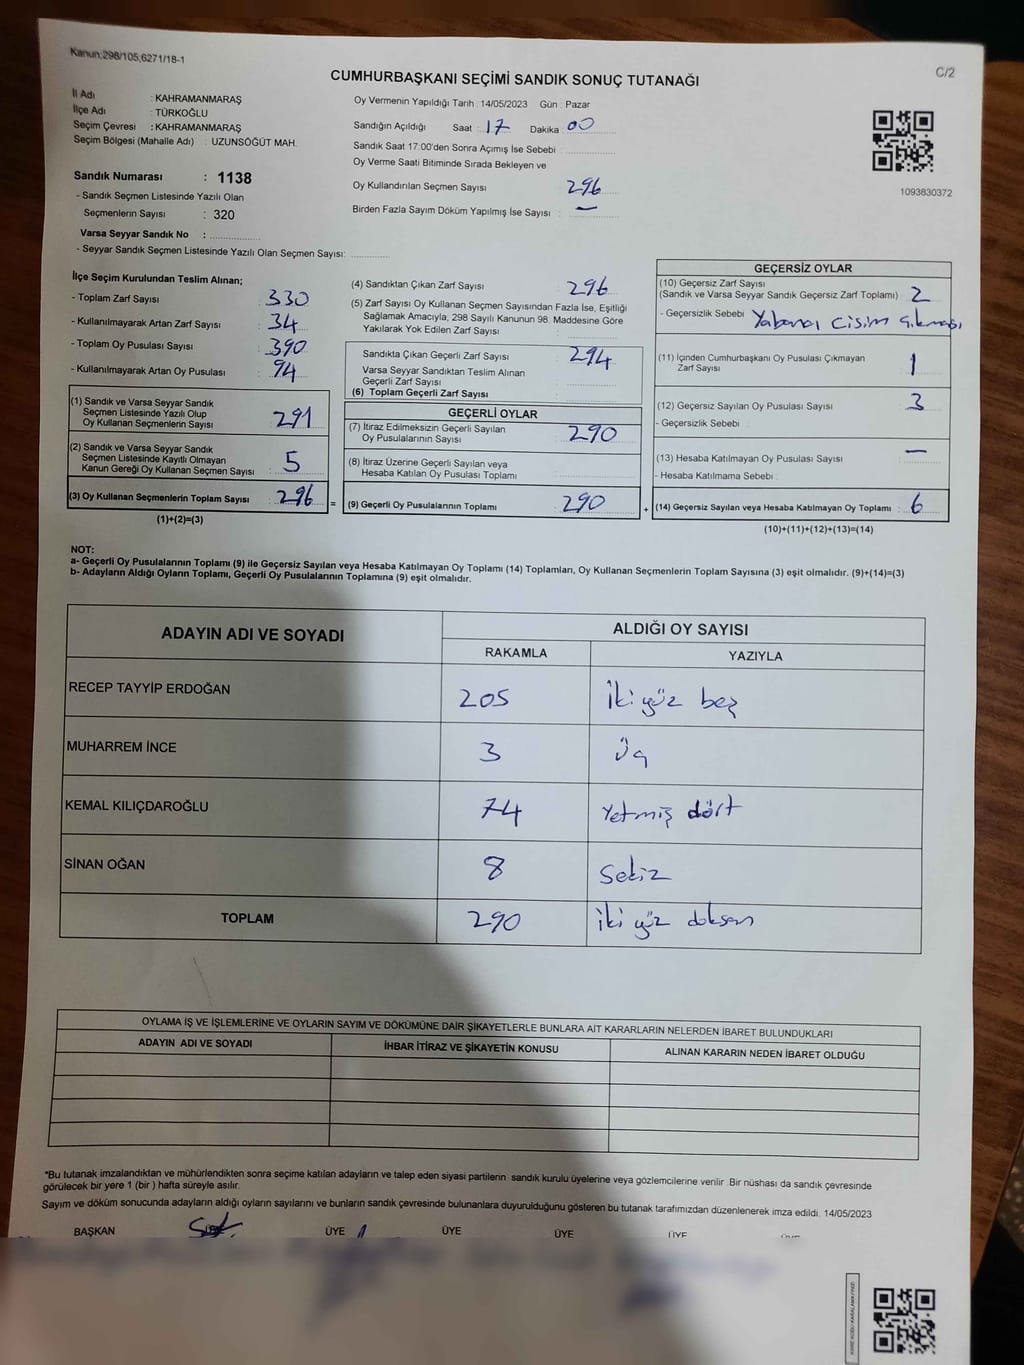 Kanun;298/105;6271/18-1
C/2
CUMHURBAŞKANI SEÇİMİ SANDIK SONUÇ TUTANAĞI
İl Adı : KAHRAMANMARAŞ
İlçe Adı : TÜRKOĞLU
Seçim Çevresi : KAHRAMANMARAŞ
Seçim Bölgesi (Mahalle Adı) : UZUNSÖĞÜT MAH.
Sandık Numarası : 1138
- Sandık Seçmen Listesinde Yazılı Olan
Seçmenlerin Sayısı : 320
Varsa Seyyar Sandık No :
- Seyyar Sandık Seçmen Listesinde Yazılı Olan Seçmen Sayısı:
Oy Vermenin Yapıldığı Tarih : 14/05/2023 Gün : Pazar
Sandığın Açıldığı Saat : 17 Dakika : 00
Sandık Saat 17:00'den Sonra Açımış İse Sebebi :
Oy Verme Saati Bitiminde Sırada Bekleyen ve
Oy Kullandırılan Seçmen Sayısı 296
Birden Fazla Sayım Döküm Yapılmış İse Sayısı : —
1093830372
İlçe Seçim Kurulundan Teslim Alınan;
- Toplam Zarf Sayısı 330
- Kullanılmayarak Artan Zarf Sayısı : 34
- Toplam Oy Pusulası Sayısı : 390
- Kullanılmayarak Artan Oy Pusulası : 94
(1) Sandık ve Varsa Seyyar Sandık
Seçmen Listesinde Yazılı Olup
Oy Kullanan Seçmenlerin Sayısı : 291
(2) Sandık ve Varsa Seyyar Sandık
Seçmen Listesinde Kayıtlı Olmayan
Kanun Gereği Oy Kullanan Seçmen Sayısı : 5
(3) Oy Kullanan Seçmenlerin Toplam Sayısı : 296 =
(1)+(2)=(3)
(4) Sandıktan Çıkan Zarf Sayısı : 296
(5) Zarf Sayısı Oy Kullanan Seçmen Sayısından Fazla İse, Eşitliği
Sağlamak Amacıyla, 298 Sayılı Kanunun 98. Maddesine Göre
Yakılarak Yok Edilen Zarf Sayısı :
Sandıkta Çıkan Geçerli Zarf Sayısı : 294
Varsa Seyyar Sandıktan Teslim Alınan
Geçerli Zarf Sayısı :
(6) Toplam Geçerli Zarf Sayısı :
GEÇERLİ OYLAR
(7) İtiraz Edilmeksizin Geçerli Sayılan
Oy Pusulalarının Sayısı : 290
(8) İtiraz Üzerine Geçerli Sayılan veya
Hesaba Katılan Oy Pusulası Toplamı :
(9) Geçerli Oy Pusulalarının Toplamı : 290 +
GEÇERSİZ OYLAR
(10) Geçersiz Zarf Sayısı
(Sandık ve Varsa Seyyar Sandık Geçersiz Zarf Toplamı) : 2
- Geçersizlik Sebebi : Yabancı cisim çıkması
(11) İçinden Cumhurbaşkanı Oy Pusulası Çıkmayan
Zarf Sayısı : 1
(12) Geçersiz Sayılan Oy Pusulası Sayısı : 3
- Geçersizlik Sebebi :
(13) Hesaba Katılmayan Oy Pusulası Sayısı : —
- Hesaba Katılmama Sebebi :
(14) Geçersiz Sayılan veya Hesaba Katılmayan Oy Toplamı : 6
(10)+(11)+(12)+(13)=(14)
NOT:
a- Geçerli Oy Pusulalarının Toplamı (9) ile Geçersiz Sayılan veya Hesaba Katılmayan Oy Toplamı (14) Toplamları, Oy Kullanan Seçmenlerin Toplam Sayısına (3) eşit olmalıdır. (9)+(14)=(3)
b- Adayların Aldığı Oyların Toplamı, Geçerli Oy Pusulalarının Toplamına (9) eşit olmalıdır.
ADAYIN ADI VE SOYADI ALDIĞI OY SAYISI
RAKAMLA YAZIYLA
RECEP TAYYİP ERDOĞAN 205 İki yüz beş
MUHARREM İNCE 3 Üç
KEMAL KILIÇDAROĞLU 74 Yetmiş dört
SİNAN OĞAN 8 Sekiz
TOPLAM 290 iki yüz doksan
OYLAMA İŞ VE İŞLEMLERİNE VE OYLARIN SAYIM VE DÖKÜMÜNE DAİR ŞİKAYETLERLE BUNLARA AİT KARARLARIN NELERDEN İBARET BULUNDUKLARI
ADAYIN ADI VE SOYADI İHBAR İTİRAZ VE ŞİKAYETİN KONUSU ALINAN KARARIN NEDEN İBARET OLDUĞU
*Bu tutanak imzalandıktan ve mühürlendikten sonra seçime katılan adayların ve talep eden siyasi partilerin sandık kurulu üyelerine veya gözlemcilerine verilir. Bir nüshası da sandık çevresinde
görülecek bir yere 1 (bir ) hafta süreyle asılır.
Sayım ve döküm sonucunda adayların aldığı oyların sayılarını ve bunların sandık çevresinde bulunanlara duyurulduğunu gösteren bu tutanak tarafımızdan düzenlenerek imza edildi. 14/05/2023
BAŞKAN ÜYE ÜYE ÜYE ÜYE